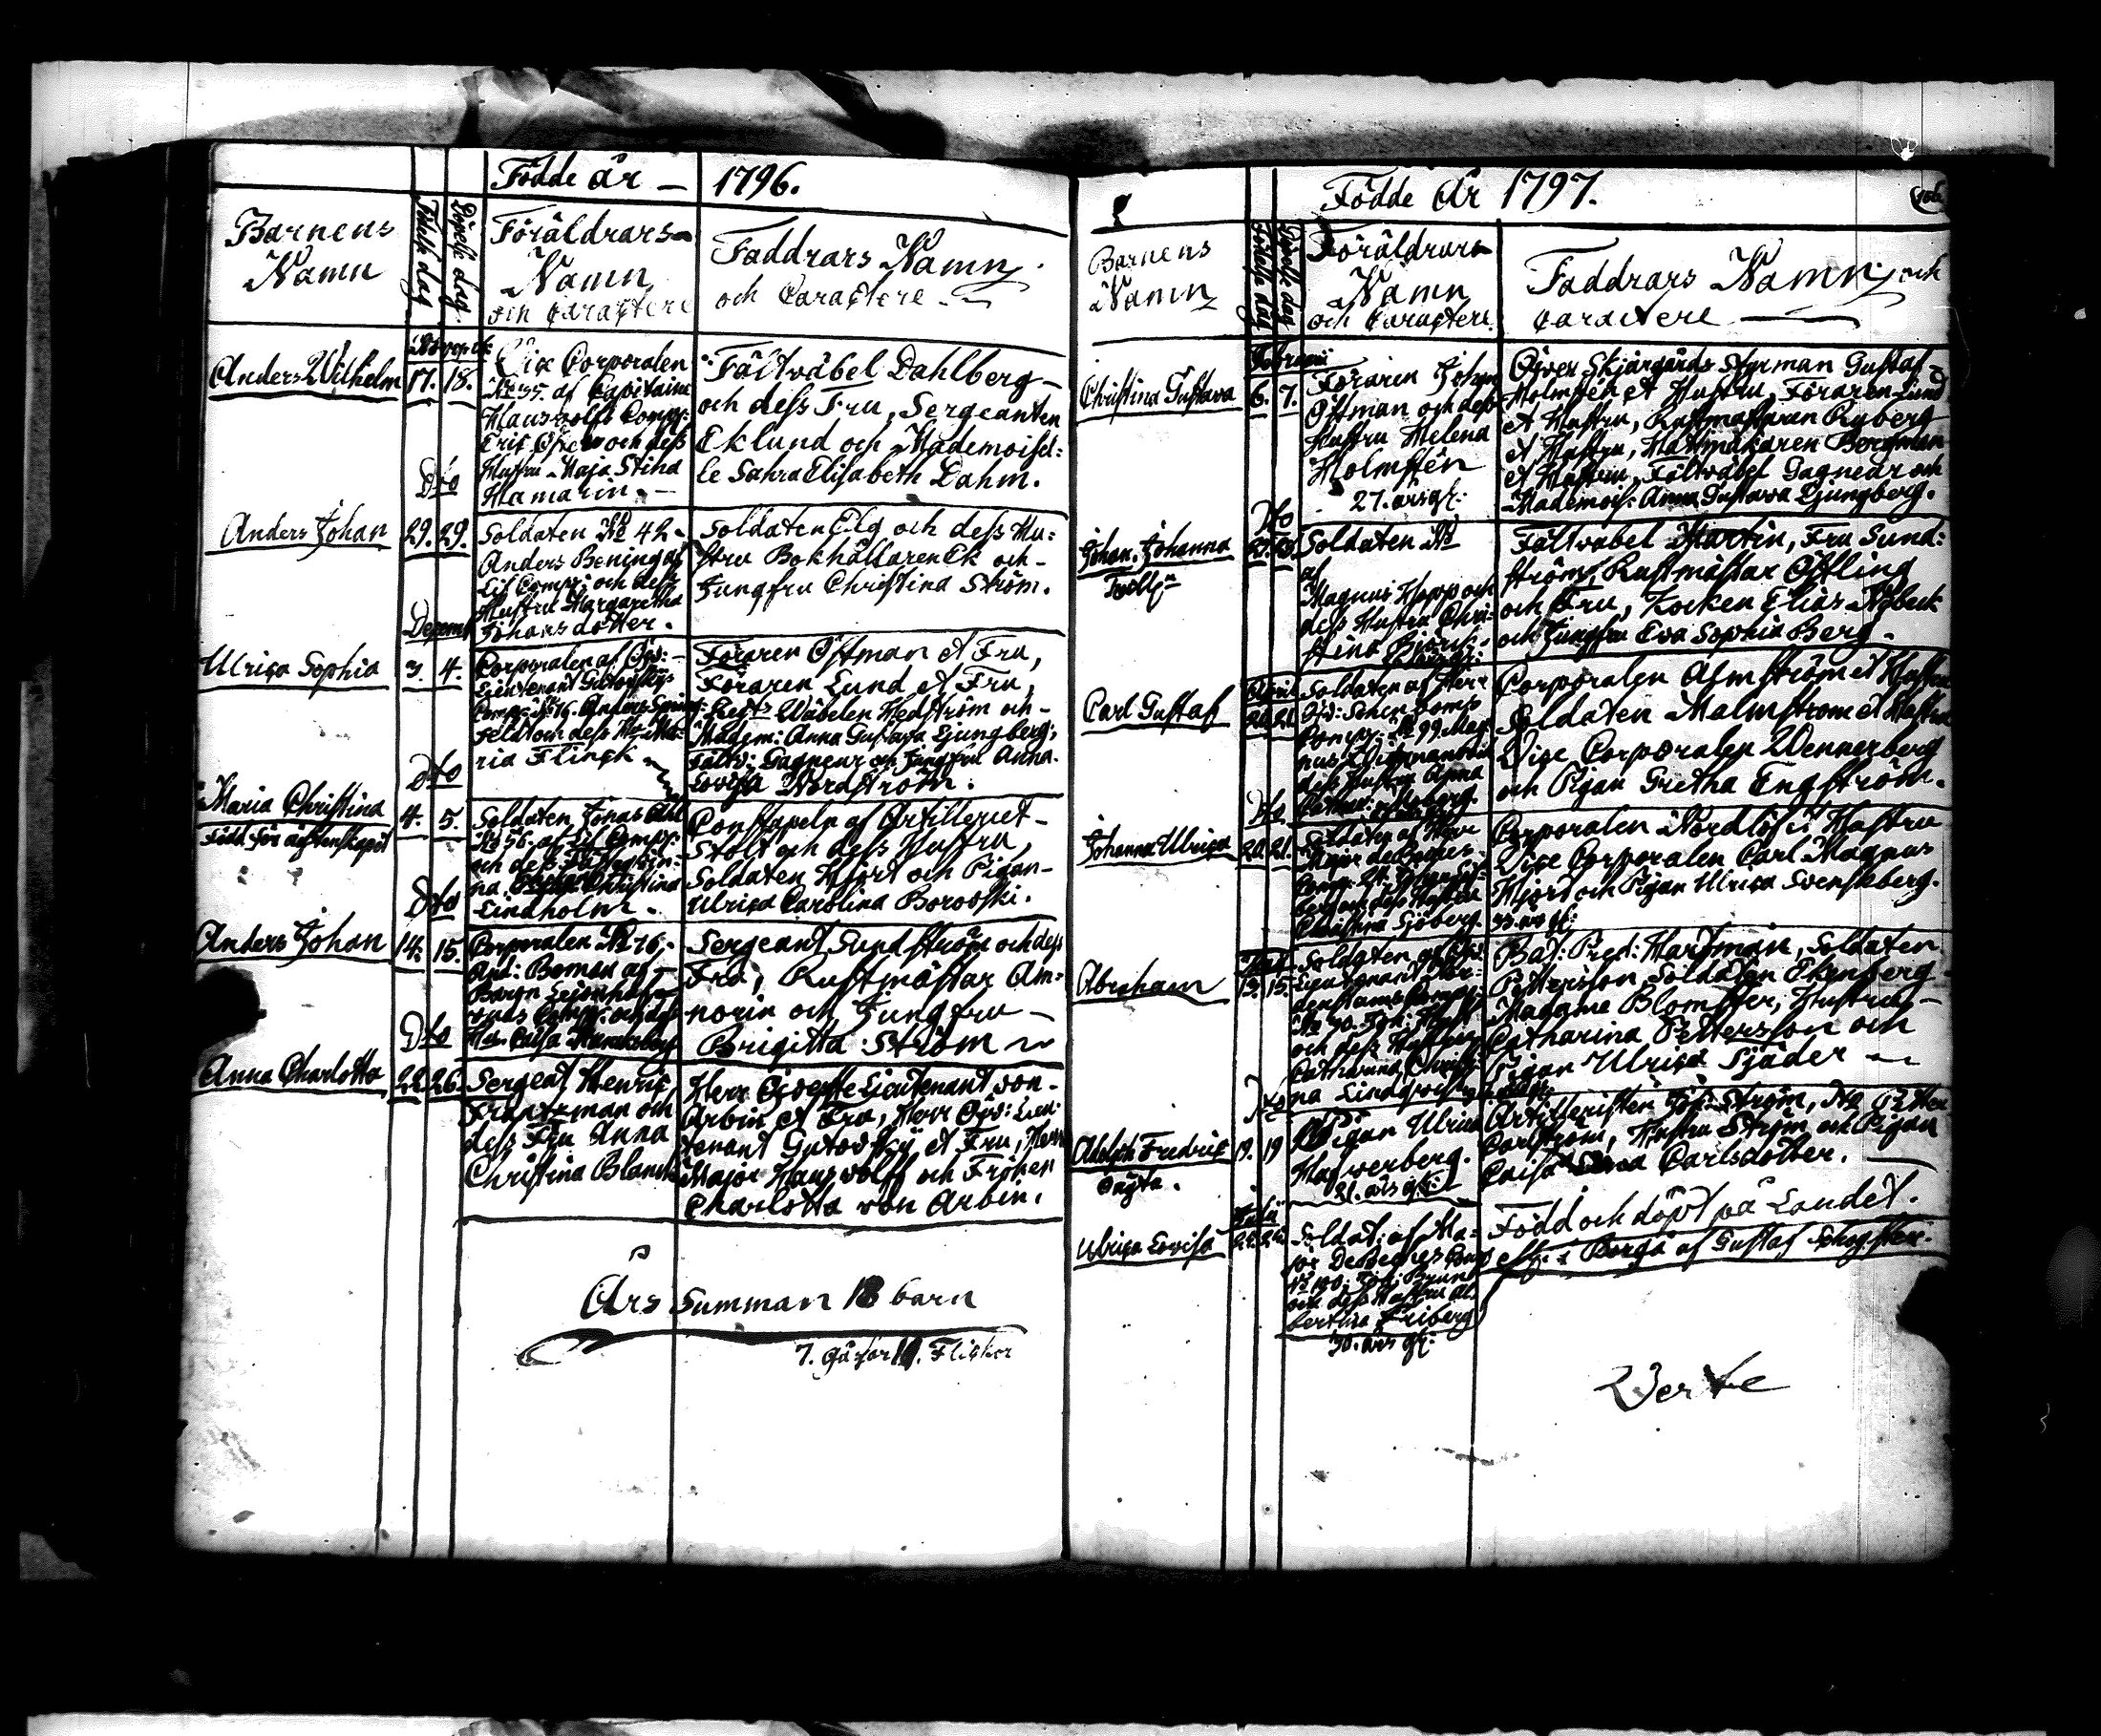 Födde år – 1796.
Barnens
Namn
Födelse dag
Döpelse dag.
Föräldrars
Namn
och Caractere
Faddrars Namn
och Caractere
Novemb:
Anders Wilhelm 17. 18.
Vice Corporalen
No 35. af Capitaine
Hauswolffs Comp:
Eric och dess
Hustru Maja Stina
Hamarin.
Fältväbel Dahlberg
och dess Fru, Sergeanten
Eklund och Mademoisel:
le Sahra Elisabeth Dahm.
Dto
Anders Johan 29. 29.
Soldaten No 42
Anders Bening af
Lif Comp: och dess
Hustru Margaretha
Johansdotter.
Soldaten Elg och dess Hu:
stru Bokhållaren Ek och
Jungfru Christina Ström.
Decemb
Ulrica Sophia 3. 4.
Corporalen af Öfv:
Lieutenant Gutofskys
Comp: No 76. Anders Spring
feldt och dess H: Ma:
ria Flinck
Föraren Östman et Fru,
Föraren Lund et Fru,
Regts Wäbelen Hedström och
Madem: Anna Gustava Ljungberg,
Fältv: Gagneur och Jungfru Anna
Lovisa Nordström.
Dto
Maria Christina 4. 5.
Född för äktenskapet
Soldaten Jonas Ahl
No 56. af Lif Comp:
och dess
na Christina
Lindholm.
Constapeln af Artilleriet
Stolt och dess Hustru,
Soldaten Hjort och Pigan
Ulrica Carolina Borovski.
Dto
Anders Johan 14. 15.
Corporalen No 76.
And: Boman af
Baron Lejonhuf
vuds Comp: och dess
Hu. Caisa
Sergeant Sundström och dess
Fru, Rustmästar Am:
norin och Jungfru
Brigitta Ström
Dto
Anna Charlotta 22. 26.
Sergeant Henric
Frantzman och
dess Fru Anna
Christina Blanck
Herr Öfverste Lieutenant von
Arbin et Fru, Herr Öfv: Lieu:
tenant Gutovsky et Fru, Herr
Major Hauswolff och Fröken
Charlotta von Arbin.
Års Summan 18 barn
7. gåssar 11. Flickor
Födde År 1797.
Barnens
Namn
Födelse dag
Döpelse dag
Föräldrars
Namn
och Caractere
Faddrars Namn och
Caractere
Februari
Christina Gustava 6. 7.
Föraren Johan
Östman och dess
Hustru Helena
Holmstén
27. års gl:
Öfver Skjärgårds Styrman Gustaf
Holmstén et Hustru, Föraren Lund
et Hustru, Rustmästaren Ryberg
et Hustru, Hattmakaren Bergman
et Hustru, Fältväbel Gagneur och
Mademois: Anna Gustava Ljungberg.
Dto
Johan. Johanna
Soldaten No
af
Magnus Hopp och
dess Hustru Chri:
stina
Fältväbel Martin, Fru Sund:
ström, Rustmästar Östling
och Fru, Kocken Elias Nöbeck
och Jungfru Eva Sophia Berg.
April
Carl Gustaf
Soldaten af Herr
Comp: No 99. Mag
nus och
dess Hustru Anna
Corporalen Almström et Hustru
Soldaten Malmström et Hustru
Vice Corporalen Wennerberg
och Pigan Gretha Engström.
Dto
Johanna Ulrica 20. 21.
Soldaten af Herr
Major
berg och dess Hustru
Christina Sjöberg.
Corporalen Nordlöf et Hustru
Vice Corporalen Carl Magnus
Hjort och Pigan Ulrica Svenskberg.
33. års gl:
Abraham 13. 15.
Soldaten af Öfv:
Lieutenant
No 90. Joh:
och dess Hustru
Catharina Christi
na Lindqvist
Bat: Pred: Hartman, Soldaten
Pettersson, Soldaten Ekenberg
Madame Blomster, Hustru
Catharina Pettersson och
Pigan Ulrica Sjöder
Dto
Adolph Fredric 19. 19
Oägta.
Pigan Ulrica
Hagverberg.
21. års gl:
Artilleristen Joh: Ström, No Petter
Carlström, Hustru Ström och Pigan
Caisa Carlsdotter.
Ulrica Lovisa
Soldat: af Ma:
jor Comp
No 100. Joh: Brunt
och dess Hustru Al:
bertina Friberg
30. års gl:
Född och döpt på Landet.
i Borgå af Gustaf
Verte